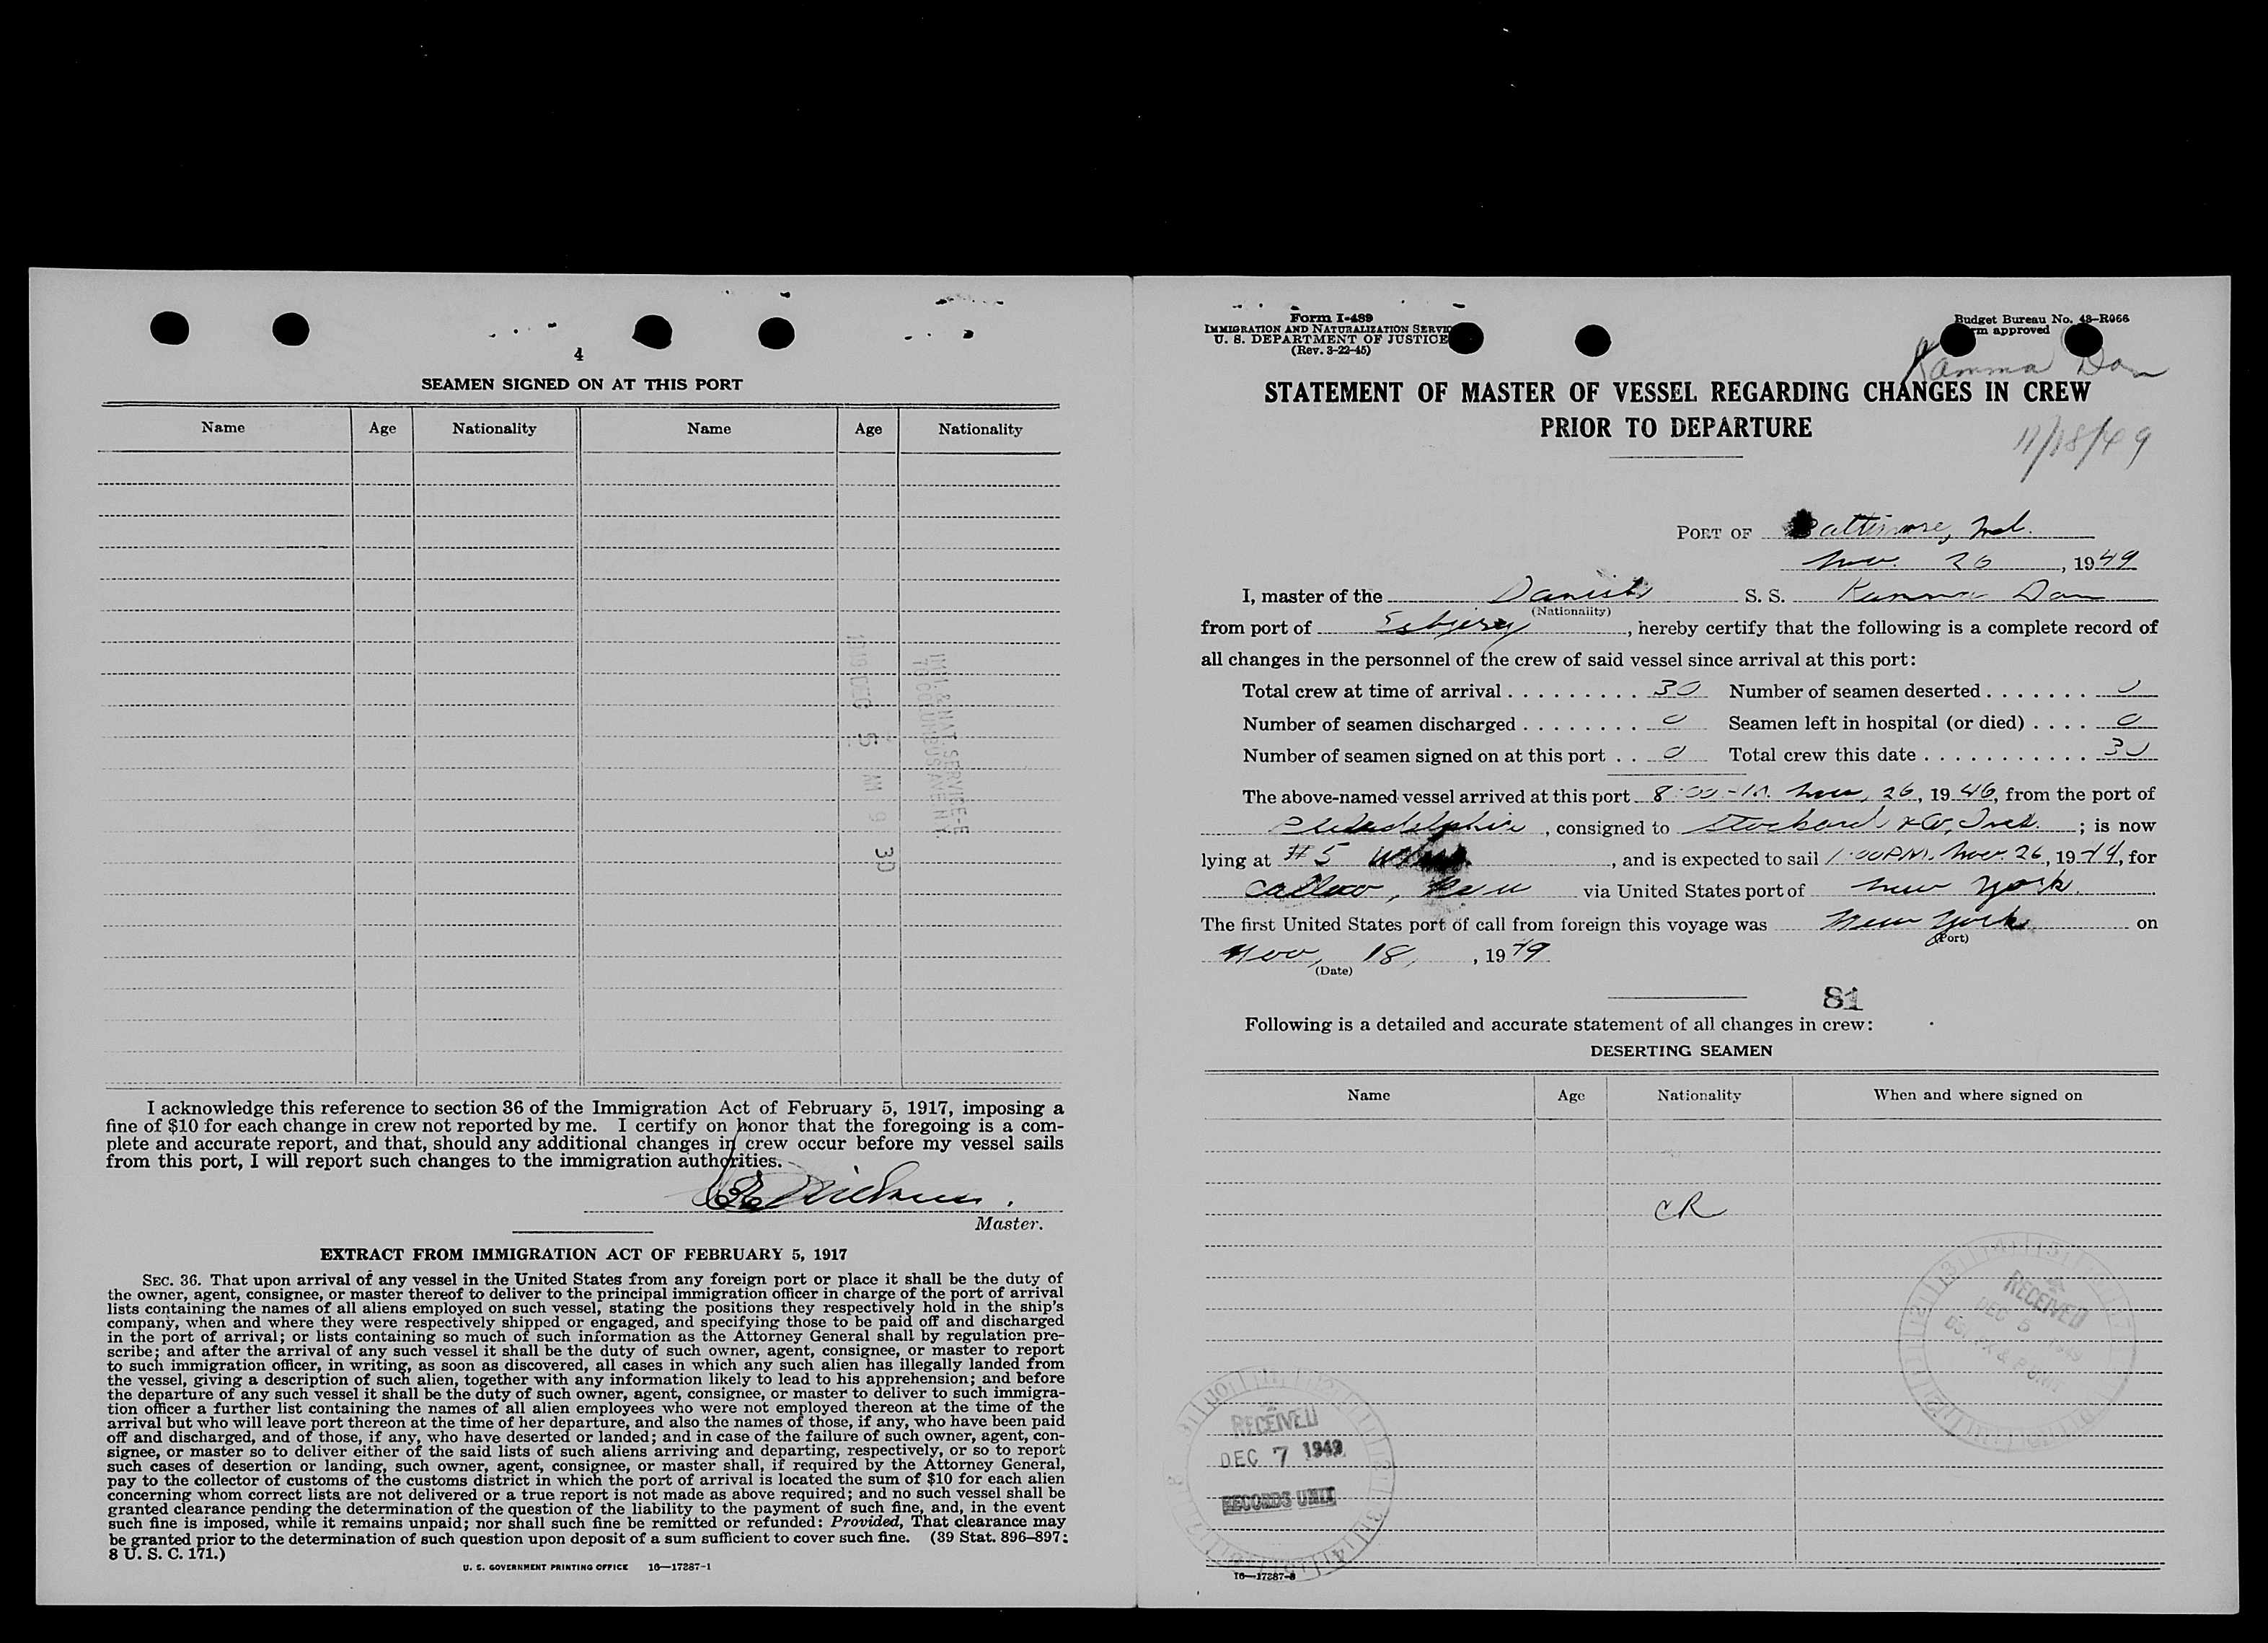 4
SEAMEN SIGNED ON AT THIS PORT
Name Age Nationality Name Age Nationality
1949 DEC 5 AM 9 30
IMM. & NAT. SERVICE
70 COLUMBUS AVE N.Y.
I acknowledge this reference to section 36 of the Immigration Act of February 5, 1917, imposing a
fine of $10 for each change in crew not reported by me. I certify on honor that the foregoing is a com-
plete and accurate report, and that, should any additional changes in crew occur before my vessel sails
from this port, I will report such changes to the immigration authorities.
Master.
EXTRACT FROM IMMIGRATION ACT OF FEBRUARY 5, 1917
SEC. 36. That upon arrival of any vessel in the United States from any foreign port or place it shall be the duty of
the owner, agent, consignee, or master thereof to deliver to the principal immigration officer in charge of the port of arrival
lists containing the names of all aliens employed on such vessel, stating the positions they respectively hold in the ship's
company, when and where they were respectively shipped or engaged, and specifying those to be paid off and discharged
in the port of arrival; or lists containing so much of such information as the Attorney General shall by regulation pre-
scribe; and after the arrival of any such vessel it shall be the duty of such owner, agent, consignee, or master to report
to such immigration officer, in writing, as soon as discovered, all cases in which any such alien has illegally landed from
the vessel, giving a description of such alien, together with any information likely to lead to his apprehension; and before
the departure of any such vessel it shall be the duty of such owner, agent, consignee, or master to deliver to such immigra-
tion officer a further list containing the names of all alien employees who were not employed thereon at the time of the
arrival but who will leave port thereon at the time of her departure, and also the names of those, if any, who have been paid
off and discharged, and of those, if any, who have deserted or landed; and in case of the failure of such owner, agent, con-
signee, or master so to deliver either of the said lists of such aliens arriving and departing, respectively, or so to report
such cases of desertion or landing, such owner, agent, consignee, or master shall, if required by the Attorney General,
pay to the collector of customs of the customs district in which the port of arrival is located the sum of $10 for each alien
concerning whom correct lists are not delivered or a true report is not made as above required; and no such vessel shall be
granted clearance pending the determination of the question of the liability to the payment of such fine, and, in the event
such fine is imposed, while it remains unpaid; nor shall such fine be remitted or refunded: Provided, That clearance may
be granted prior to the determination of such question upon deposit of a sum sufficient to cover such fine. (39 Stat. 896-897;
8 U. S. C. 171.)
U. S. GOVERNMENT PRINTING OFFICE 16—17287-1
Form I-489
IMMIGRATION AND NATURALIZATION SERVIC
U. S. DEPARTMENT OF JUSTICE
(Rev. 3-22-45)
Budget Bureau No. 43-R066
rm approved
Kamma Dan
STATEMENT OF MASTER OF VESSEL REGARDING CHANGES IN CREW
PRIOR TO DEPARTURE
11/18/49
PORT OF Baltimore, Md.
Nov. 26, 1949
I, master of the Danish S. S. Kamma Dan
(Nationality)
from port of Esbjerg, hereby certify that the following is a complete record of
all changes in the personnel of the crew of said vessel since arrival at this port:
Total crew at time of arrival . . . . . . . . . 30 Number of seamen deserted . . . . . . . 0
Number of seamen discharged . . . . . . . . 0 Seamen left in hospital (or died) . . . . 0
Number of seamen signed on at this port . . 0 Total crew this date . . . . . . . . . . . 30
The above-named vessel arrived at this port 8:00 Nov. 26, 19 , from the port of
Philadelphia, consigned to Stockard & Co, ; is now
lying at #5, and is expected to sail 1:00 PM. Nov. 26, 19 , for
Callao, Peru via United States port of New York
The first United States port of call from foreign this voyage was New York on
(Port)
Nov, 18, 1949
(Date)
81
Following is a detailed and accurate statement of all changes in crew:
DESERTING SEAMEN
Name Age Nationality When and where signed on
CR
RECEIVED
DEC 5 1949
RECEIVED
DEC 7 1949
RECORDS UNIT
16—17287-3